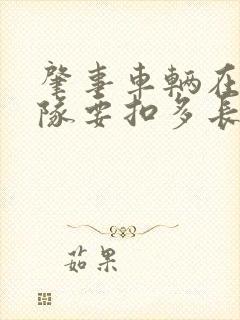 肇事車輛在
隊要扣多長
茹果